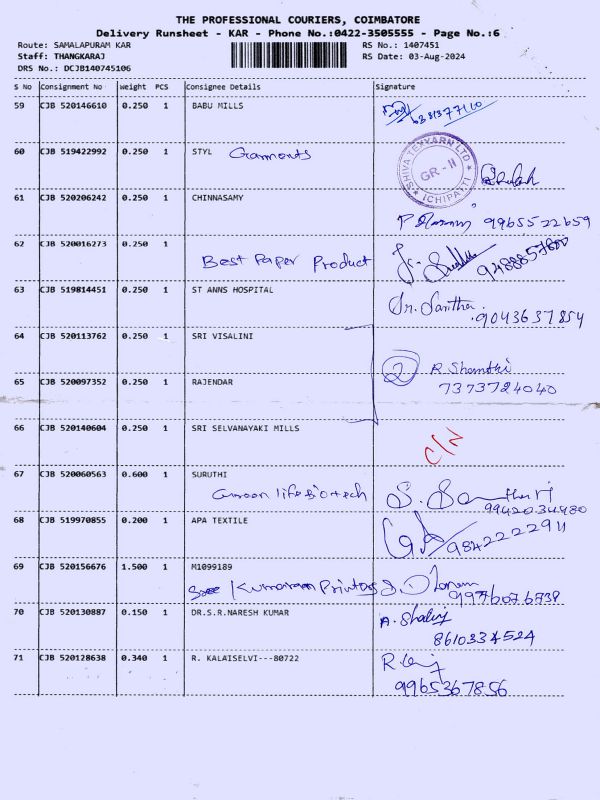 THE PROFESSIONAL COURIERS, COIMBATORE
Delivery Runsheet - KAR - Phone No.:0422-3505555 - Page No.:6
Route: SAMALAPURAM KAR RS No.: 1407451
Staff: THANGKARAJ RS Date: 03-Aug-2024
DRS No.: DCJB140745106
S No Consignment No Weight PCS Consignee Details Signature
59 CJB 520146610 0.250 1 BABU MILLS
60 CJB 519422992 0.250 1 STYL Garments
SHIVA TEXYARN LTD
GR-II
ICHIPATTI
61 CJB 520206242 0.250 1 CHINNASAMY
9965522659
62 CJB 520016273 0.250 1
Best Paper Product 9488857800
63 CJB 519814451 0.250 1 ST ANNS HOSPITAL Sr. Santha
9043637854
64 CJB 520113762 0.250 1 SRI VISALINI
2 R. Shanthi
65 CJB 520097352 0.250 1 RAJENDAR 7373724040
66 CJB 520140604 0.250 1 SRI SELVANAYAKI MILLS C/N
67 CJB 520060563 0.600 1 SURUTHI
lifebiotech
9942034980
68 CJB 519970855 0.200 1 APA TEXTILE
9842222911
69 CJB 520156676 1.500 1 M1099189
Sree Kumaran Printing
70 CJB 520130887 0.150 1 DR.S.R.NARESH KUMAR
8610334524
71 CJB 520128638 0.340 1 R. KALAISELVI---80722
9965367856